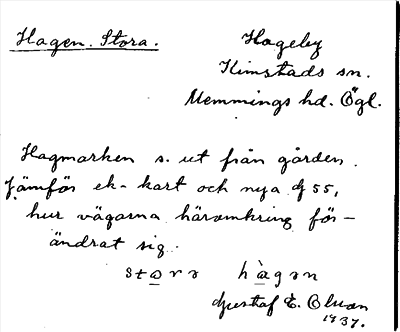 Hagen. Stora.
Hageby
Kimstads sn.
Memmings hd. Ögl.
Hagmarken s. ut från gården.
Jämför ek-kart och nya
55,
hur vägarna häromkring för-
ändrat sig.
stọrə hàgən
Gustaf E. Olsson
1937.